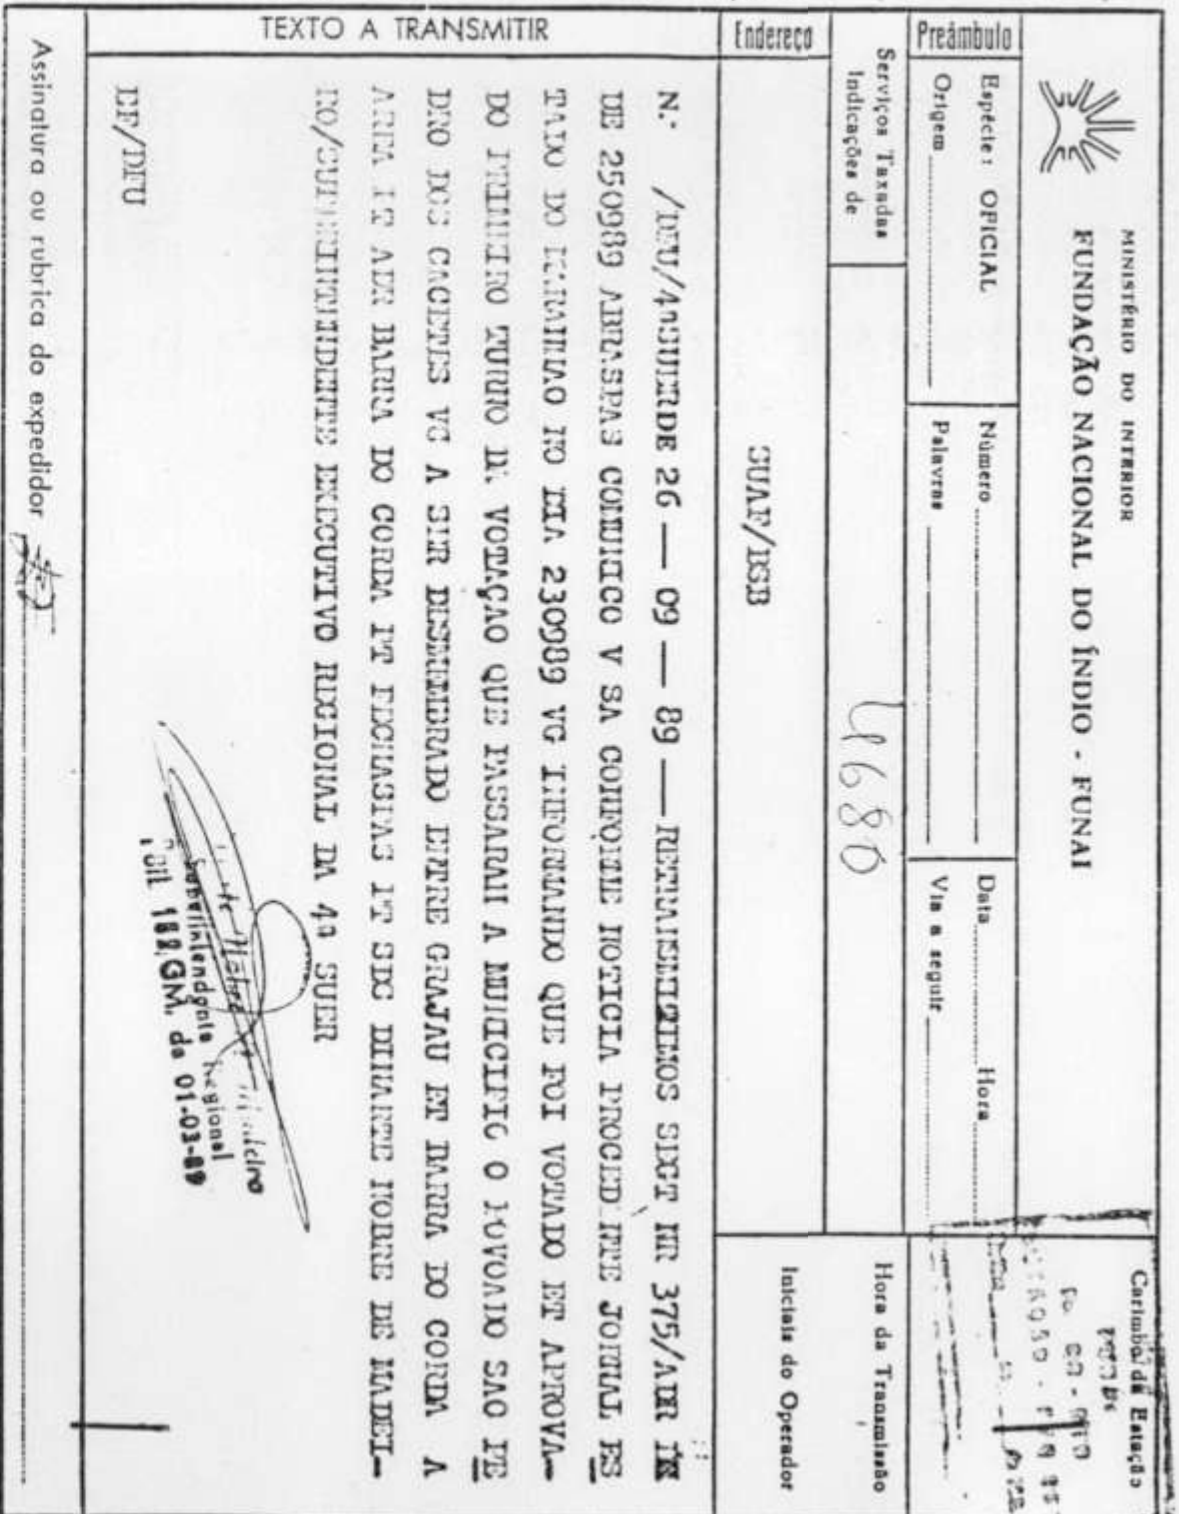 MINISTÉRIO DO INTERIOR
FUNDAÇÃO NACIONAL DO ÍNDIO - FUNAI
Carimbo da Estação
Preâmbulo
Espécie: OFICIAL
Número
Data Hora
Origem
Palavras
Via a seguir
Serviços Taxados
Indicações de
4680
Hora da Transmissão
Endereço
SUAF/BSB
Iniciais do Operador
TEXTO A TRANSMITIR
N.º /DFU/4ªSUER DE 26 — 09 — 89 — RETRANSMITIMOS SEGT NR 375/ADR
DE 250989 ABRASPAS COMUNICO V SA CONFORME NOTICIA PROCEDENTE JORNAL ES
TADO DO MARANHAO NO DIA 230989 VG INFORMANDO QUE FOI VOTADO ET APROVA-
DO PRIMEIRO TURNO DE VOTAÇAO QUE PASSARAM A MUNICIPIO O POVOADO SAO PE
DRO DOS CACETES VG A SER DESMEMBRADO ENTRE GRAJAU ET BARRA DO CORDA A
AREA PT ADR BARRA DO CORDA PT FECHASPAS PT SDC DINARTE NOBRE DE MADEI-
RO/SUPERINTENDENTE EXECUTIVO REGIONAL DA 4ª SUER
EF/DFU
Superintendente Regional
182/GM. de 01-03-89
Assinatura ou rubrica do expedidor